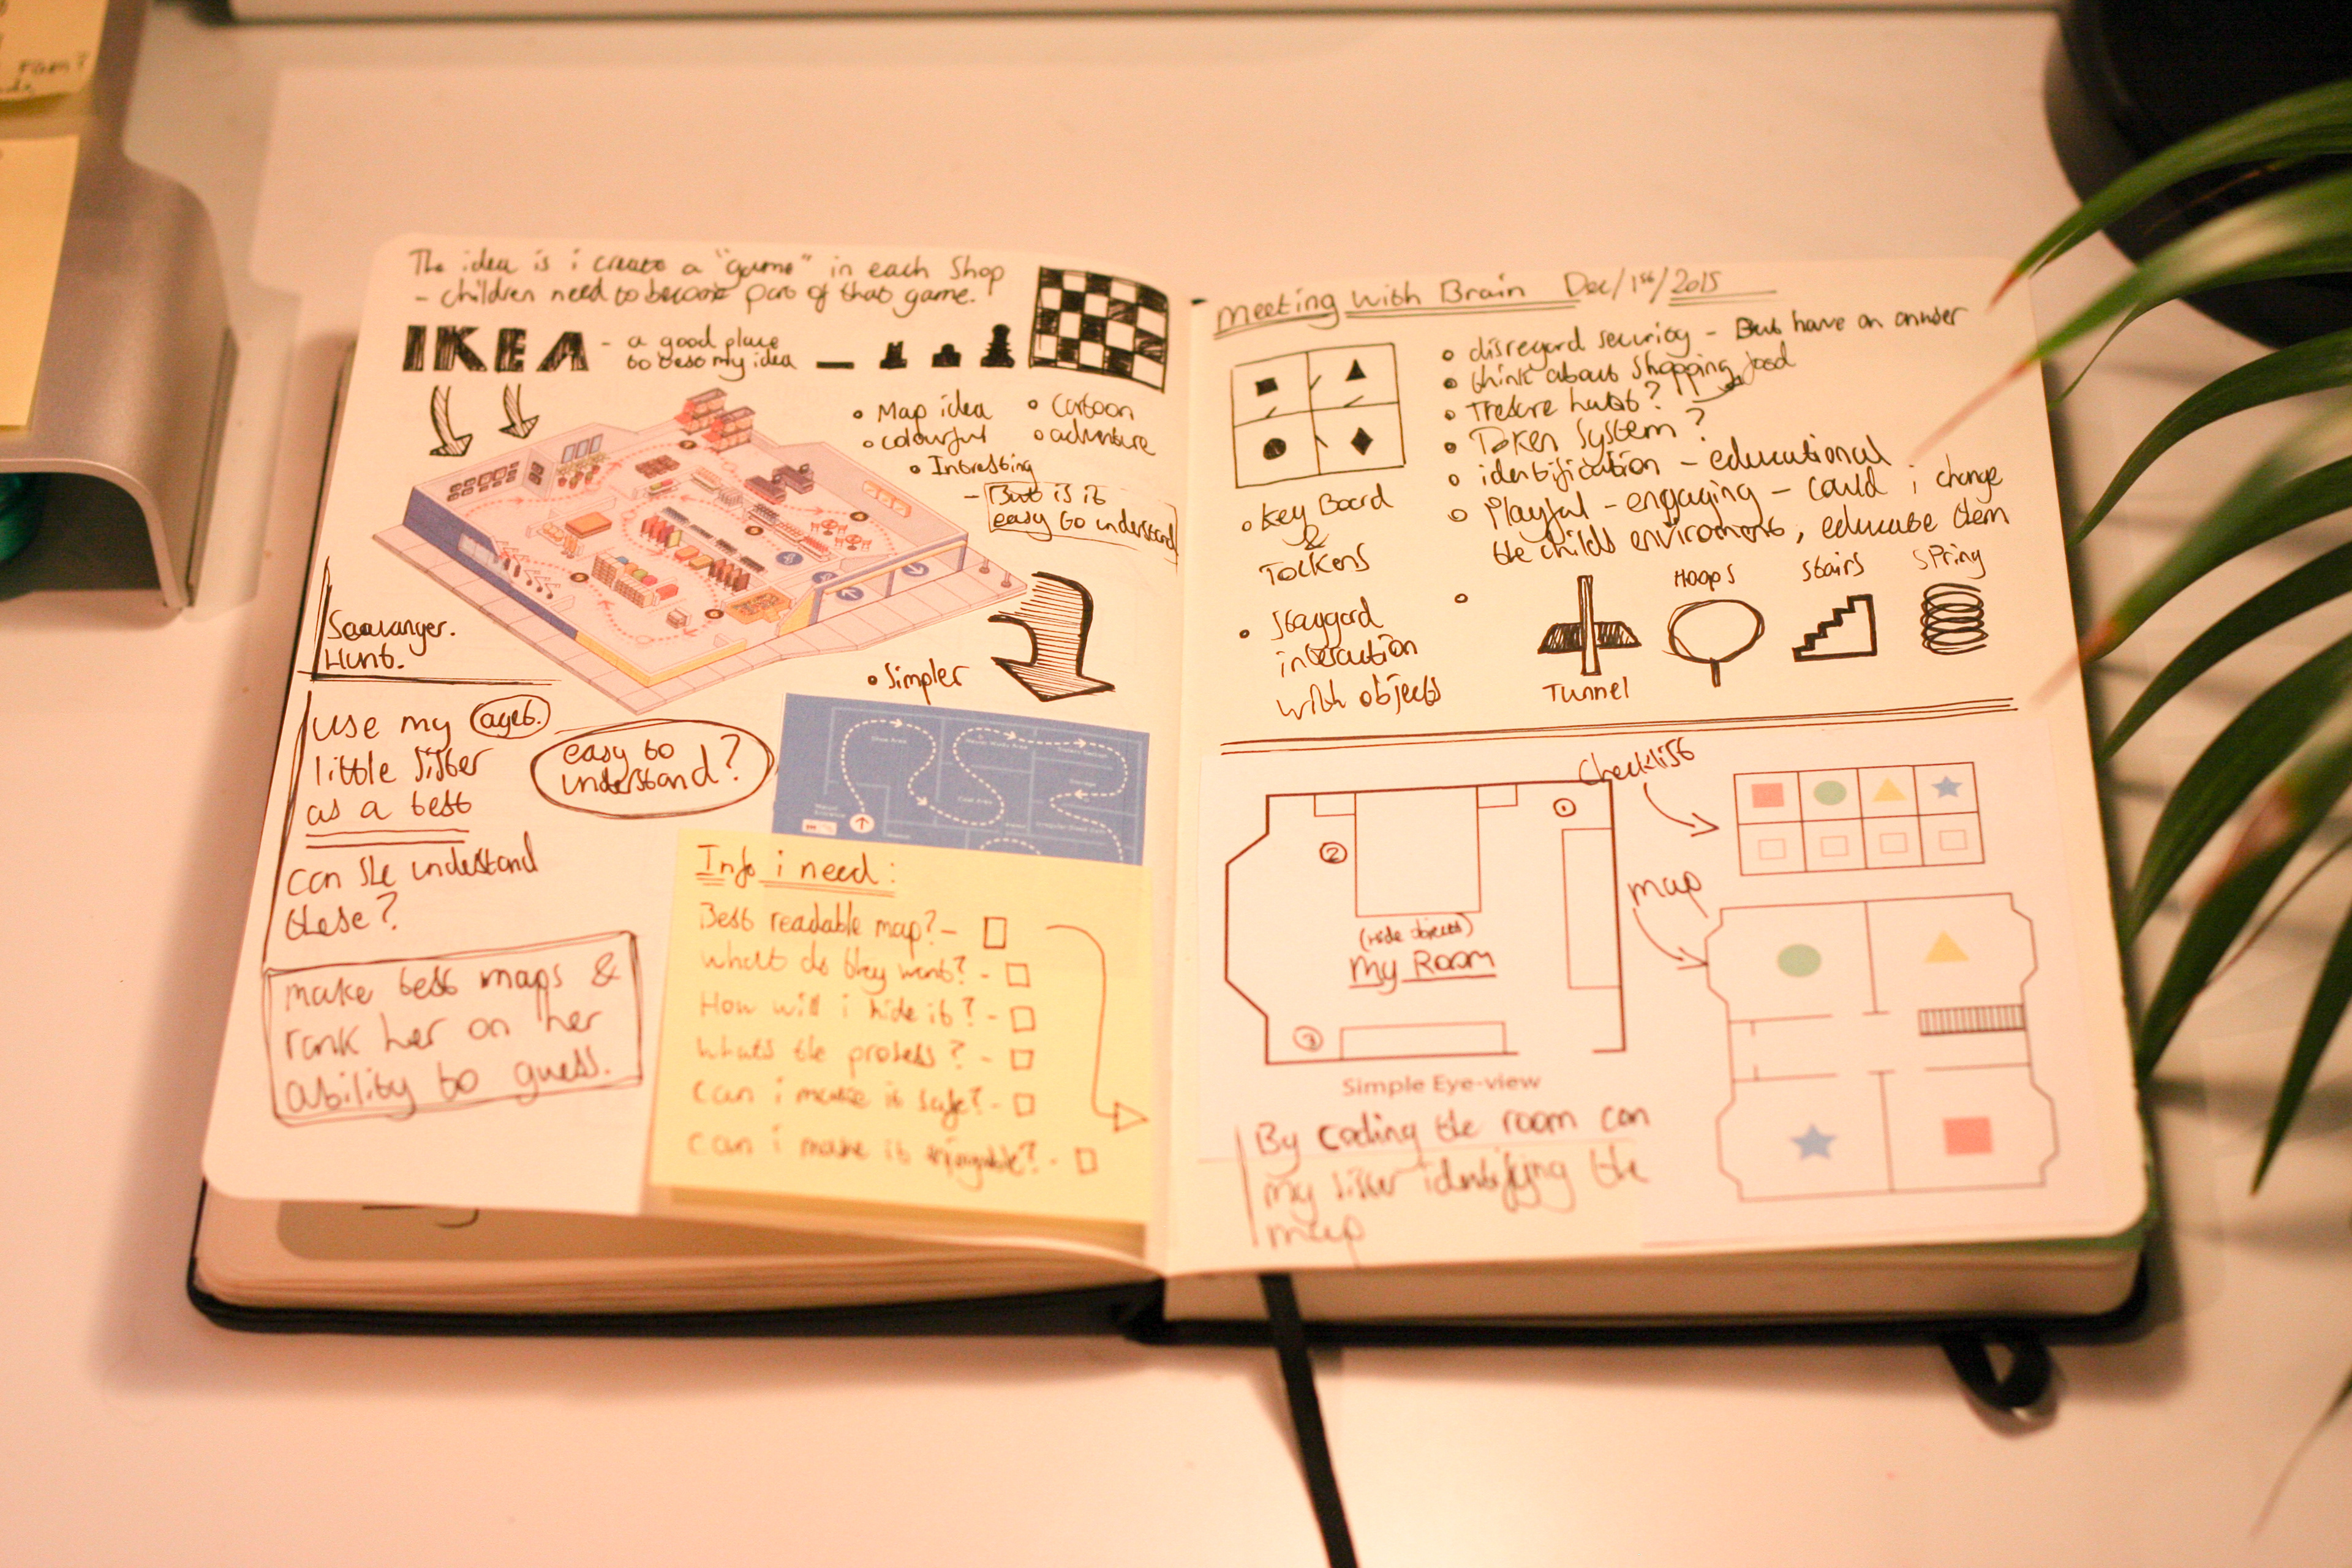 The idea is i create a "game" in each Shop
- children need to become part of that game.
IKEA - a good place
to test my idea
• Map idea
• colourful
• Cartoon
• adventure
• Intresting
- But is it
easy to understand
Hunt.
• Simpler
use my age6.
little sister
as a test
easy to
understand?
can she understand
these?
make test maps &
rank her on her
ability to guess.
Info i need:
Best readable map? -
what do they want? -
How will i hide it? -
whats the process? -
can i make it safe? -
can i make it enjoyable? -
Meeting with Brain Dec/1st/2015
• disregard security - But have an answer
• think about Shopping food
• Tresure hunt?
• Token System?
• identification - educational
• Playful - engaging - could i change
the childs enviroment, educate them
• Key Board
&
Tolkens
• Staggard
interaction
with objects
Tunnel
Hoops
Stairs
Spring
Checklist
map
1
2
3
(hide objects)
My Room
Simple Eye-view
By coding the room can
my sister identifying the
map